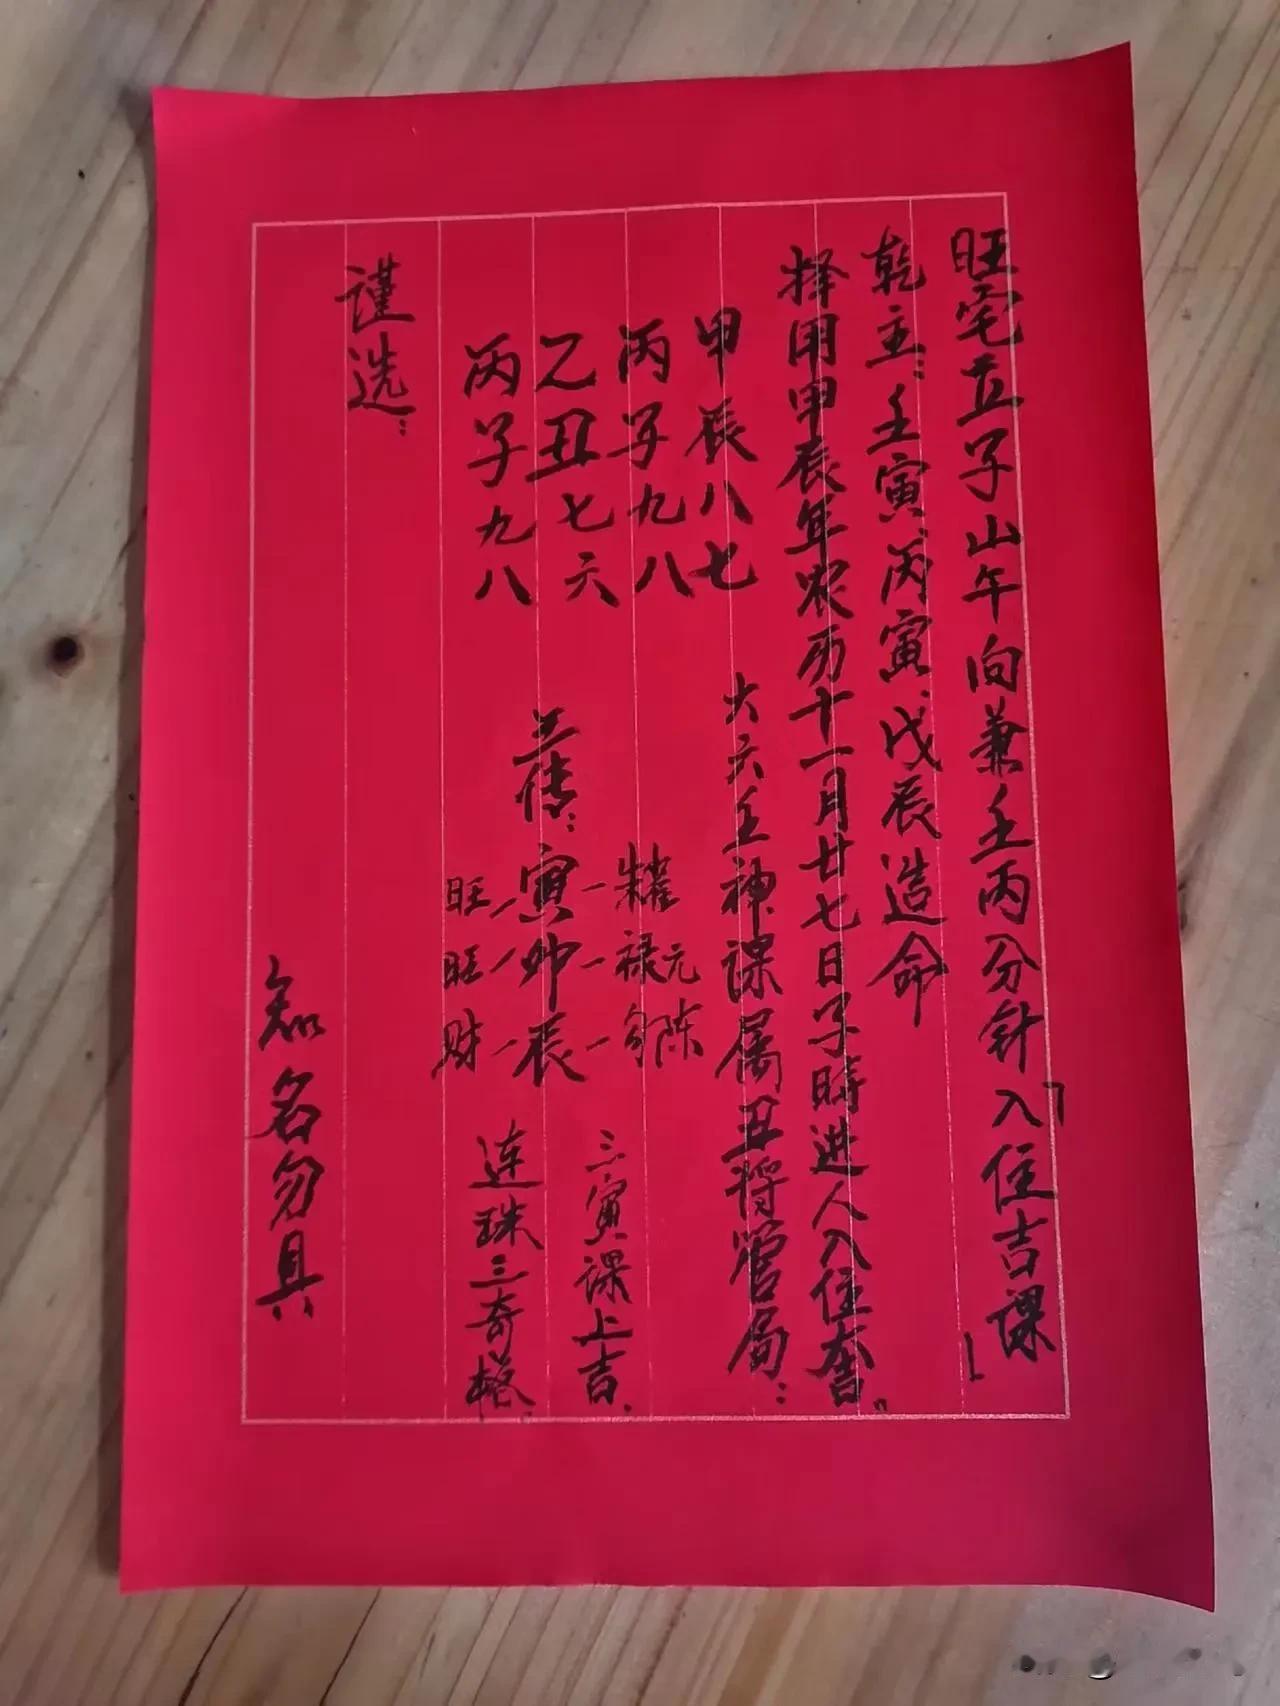 旺宅立子山午向兼壬丙分针「入住吉课」
乾主：壬寅、丙寅、戊辰造命
择用甲辰年农历十一月廿七日子時进人入住大吉。
甲辰八七
丙子九八
乙丑七六
丙子九八
大六壬神课属丑将管局：
三传：寅卯辰
禄元
勾陈
旺
旺
财
三寅课上吉、
连珠三奇格
谨选：
知名勿具